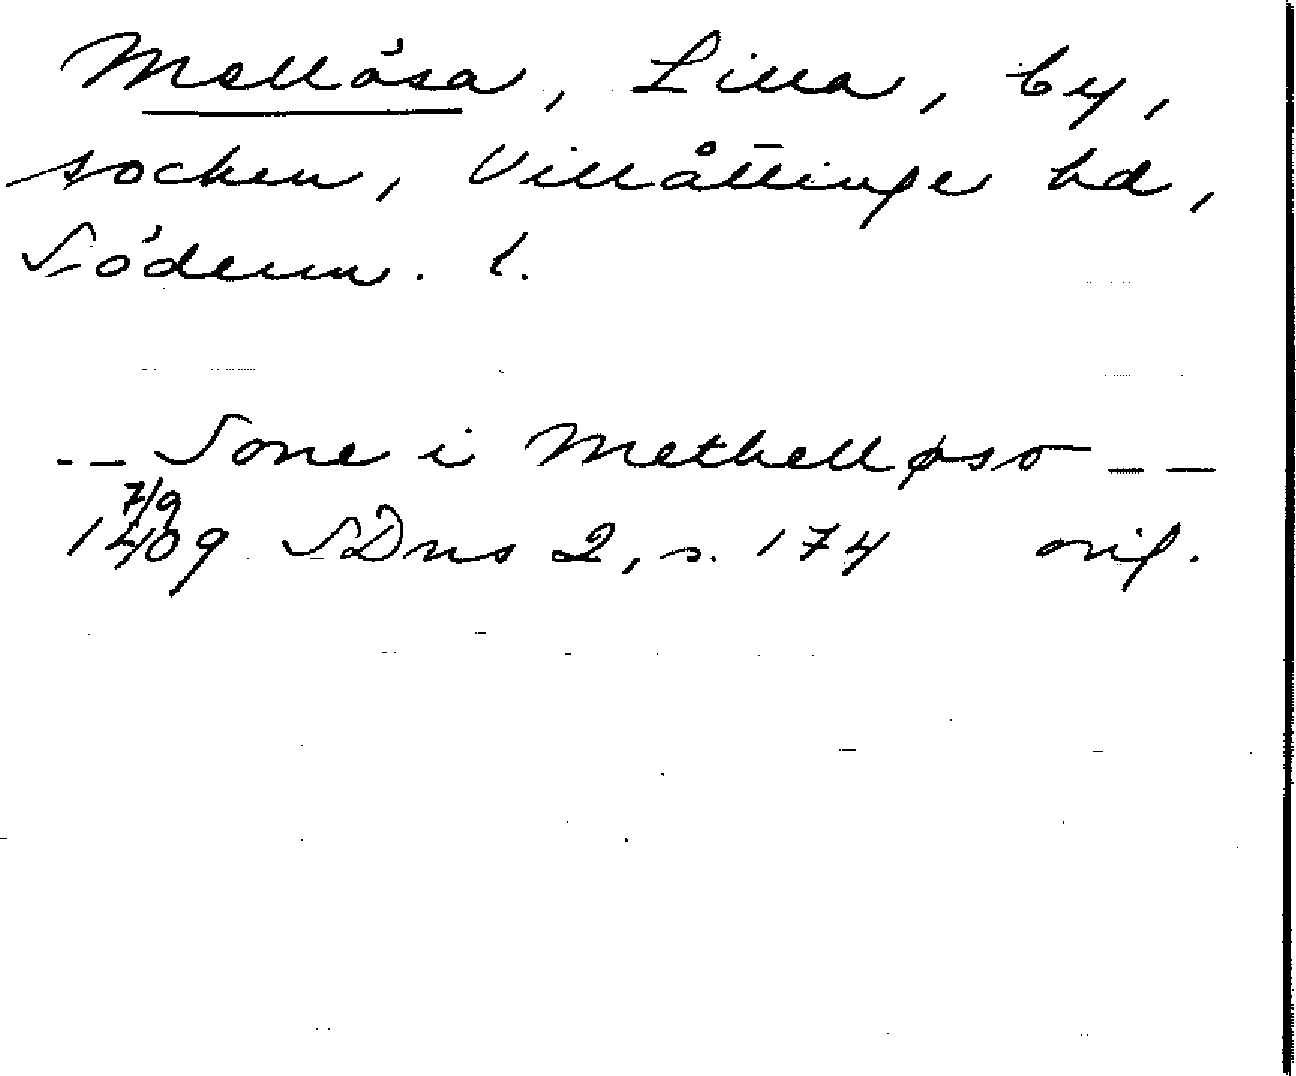 Mellösa, Lilla, by,
socken, Villåttinge hd,
Söderm. l.
-- Sone i Methelløso --
7/9
1409 SDns 2, s. 174 orig.